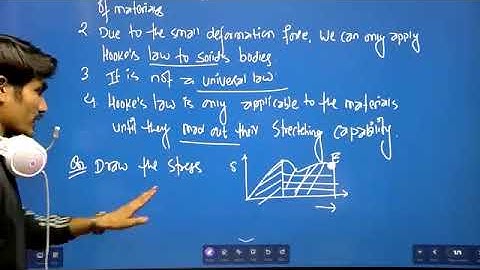 of materials
2 Due to the small deformation force, we can only apply
Hooke's law to solids bodies
3 It is not a universal law
4 Hooke's law is only applicable to the materials
until they max out their stretching capability.
Qs Draw the stress S E
1/1